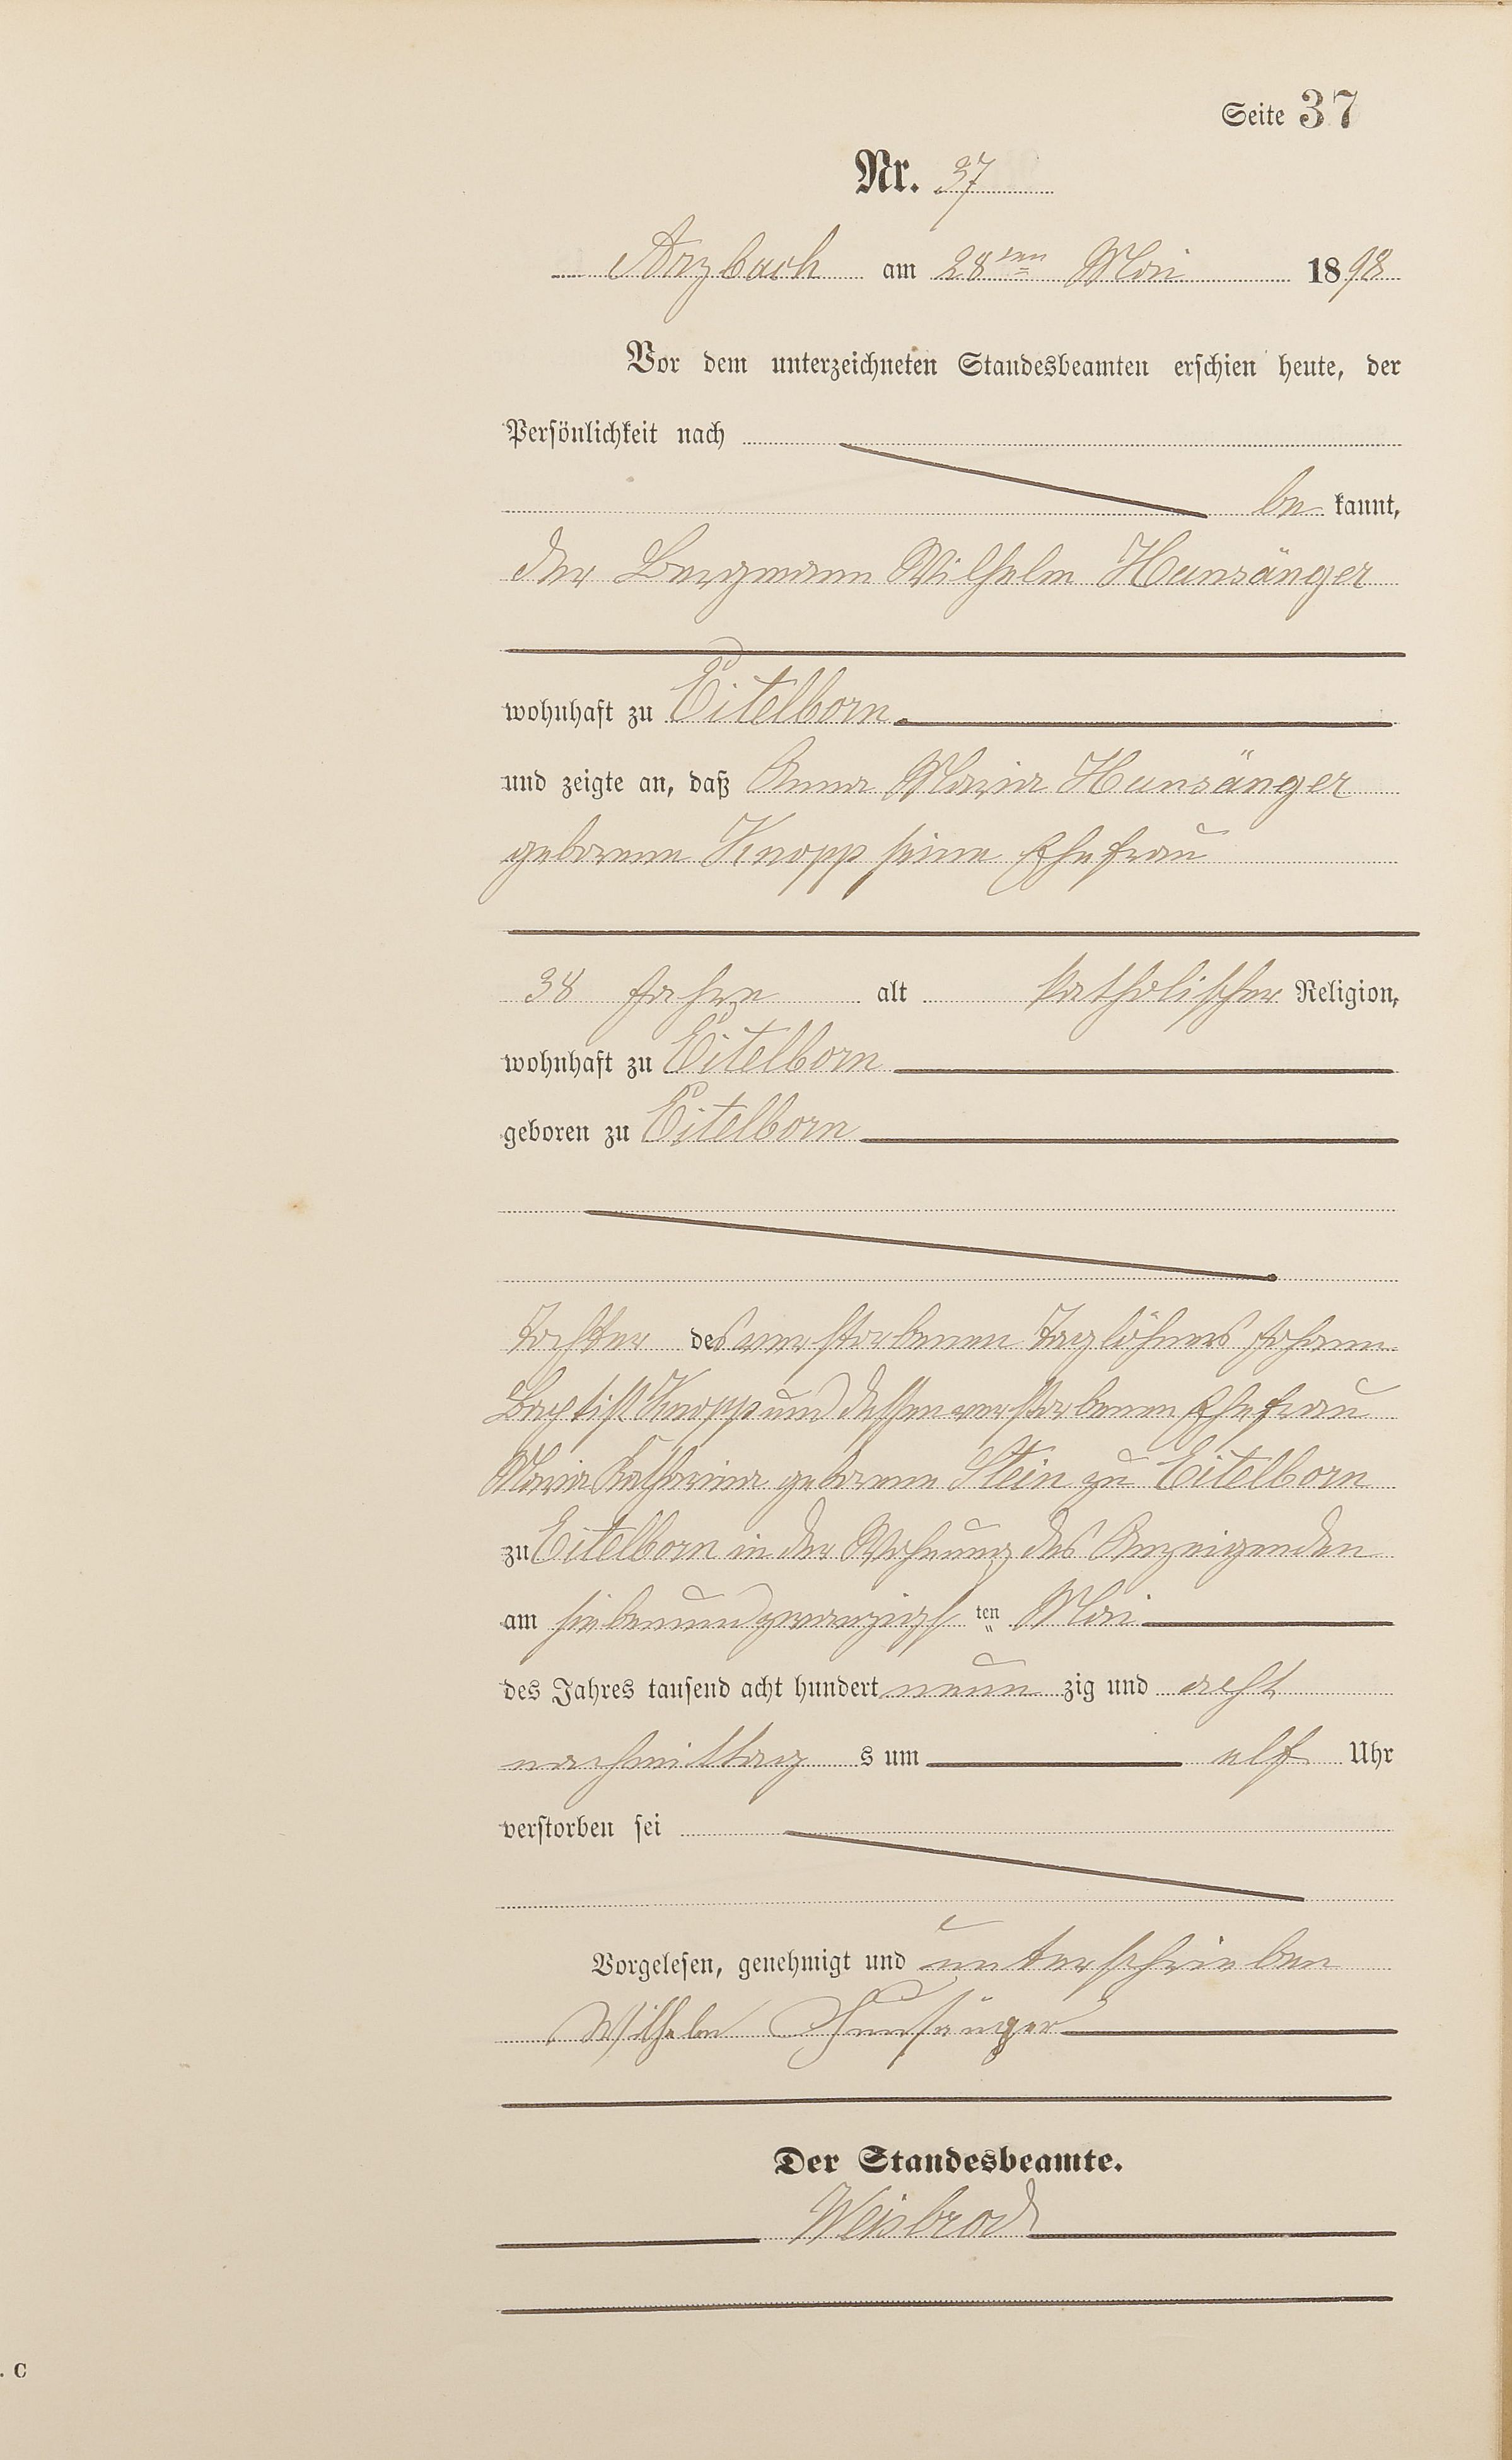 Seite 37
Nr. 37
Arzbach am 28ten Mai 1898
Vor dem unterzeichneten Standesbeamten erschien heute, der
Persönlichkeit nach
be kannt,
der Bergmann Wilhelm Hunsänger
wohnhaft zu Eitelborn
und zeigte an, daß Anna Maria Hunsänger
geborene Knopp seine Ehefrau
38 Jahre alt katholischer Religion,
wohnhaft zu Eitelborn
geboren zu Eitelborn
Tochter des verstorbenen Taglöhners Johann
Baptist Knopp und dessen verstorbenen Ehefrau
Maria Katharina geborene Stein zu Eitelborn
zu Eitelborn in der Wohnung des Anzeigenden
am siebenundzwanzigs ten Mai
des Jahres tausend acht hundert neun zig und acht
nachmittag s um elf Uhr
verstorben sei
Vorgelesen, genehmigt und unterschrieben
Wilhelm Hunsänger
Der Standesbeamte.
Weisbrod
. C